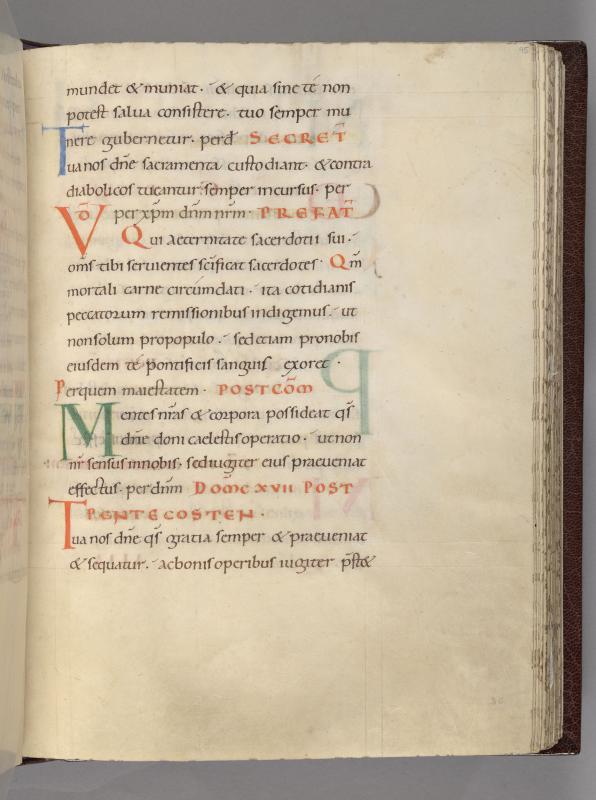 95
mundet & muniat. & quia sine te non
potest salua consistere. tuo semper mu
nere gubernetur. perd̄ SECRET̄
Tua nos dn̄e sacramenta custodiant. & contra
diabolicos tueantur semper incursus. per
VD̄ per xp̄m dn̄m nr̄m. PREFAT̄
Qui aeternitate sacerdotii sui.
om̄s tibi seruientes sc̄ificat sacerdotes. Qm̄
mortali carne circúmdati. ita cotidianis
peccatorum remissionibus indigemus. ut
non solum pro populo. sed etiam pro nobis
eiusdem te pontificis sanguis exoret.
Per quem maiestatem. POSTCOM̄
Mentes nr̄as & corpora possideat qs̄
dn̄e doni caelestis operatio. ut non
nr̄ sensus in nobis. sed iugiter eius praeueniat
effectus. per dn̄m DOMC̄ XVII POST
PENTECOSTEN.
Tua nos dn̄e qs̄ gratia semper & praeueniat
& sequatur. ac bonis operibus iugiter p̄st&